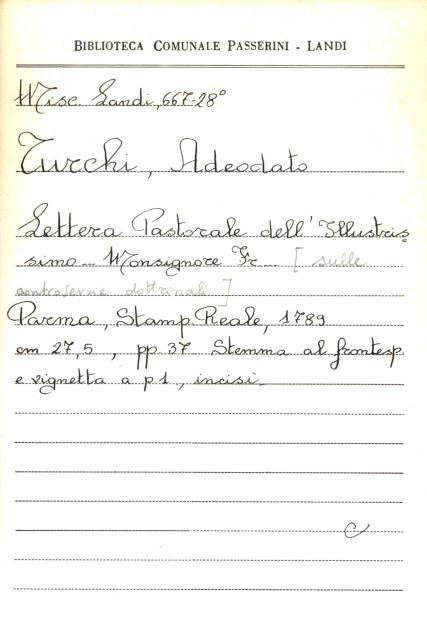 BIBLIOTECA COMUNALE PASSERINI - LANDI
Misc. Landi, 667-28°
Turchi, Adeodato
Lettera Pastorale dell' Illustris=
simo... Monsignore Fr... [sulle
controversie dottrinali]
Parma, Stamp. Reale, 1789
cm 27,5, pp. 37 Stemma al frontesp.
e vignetta a p 1, incisi.
C